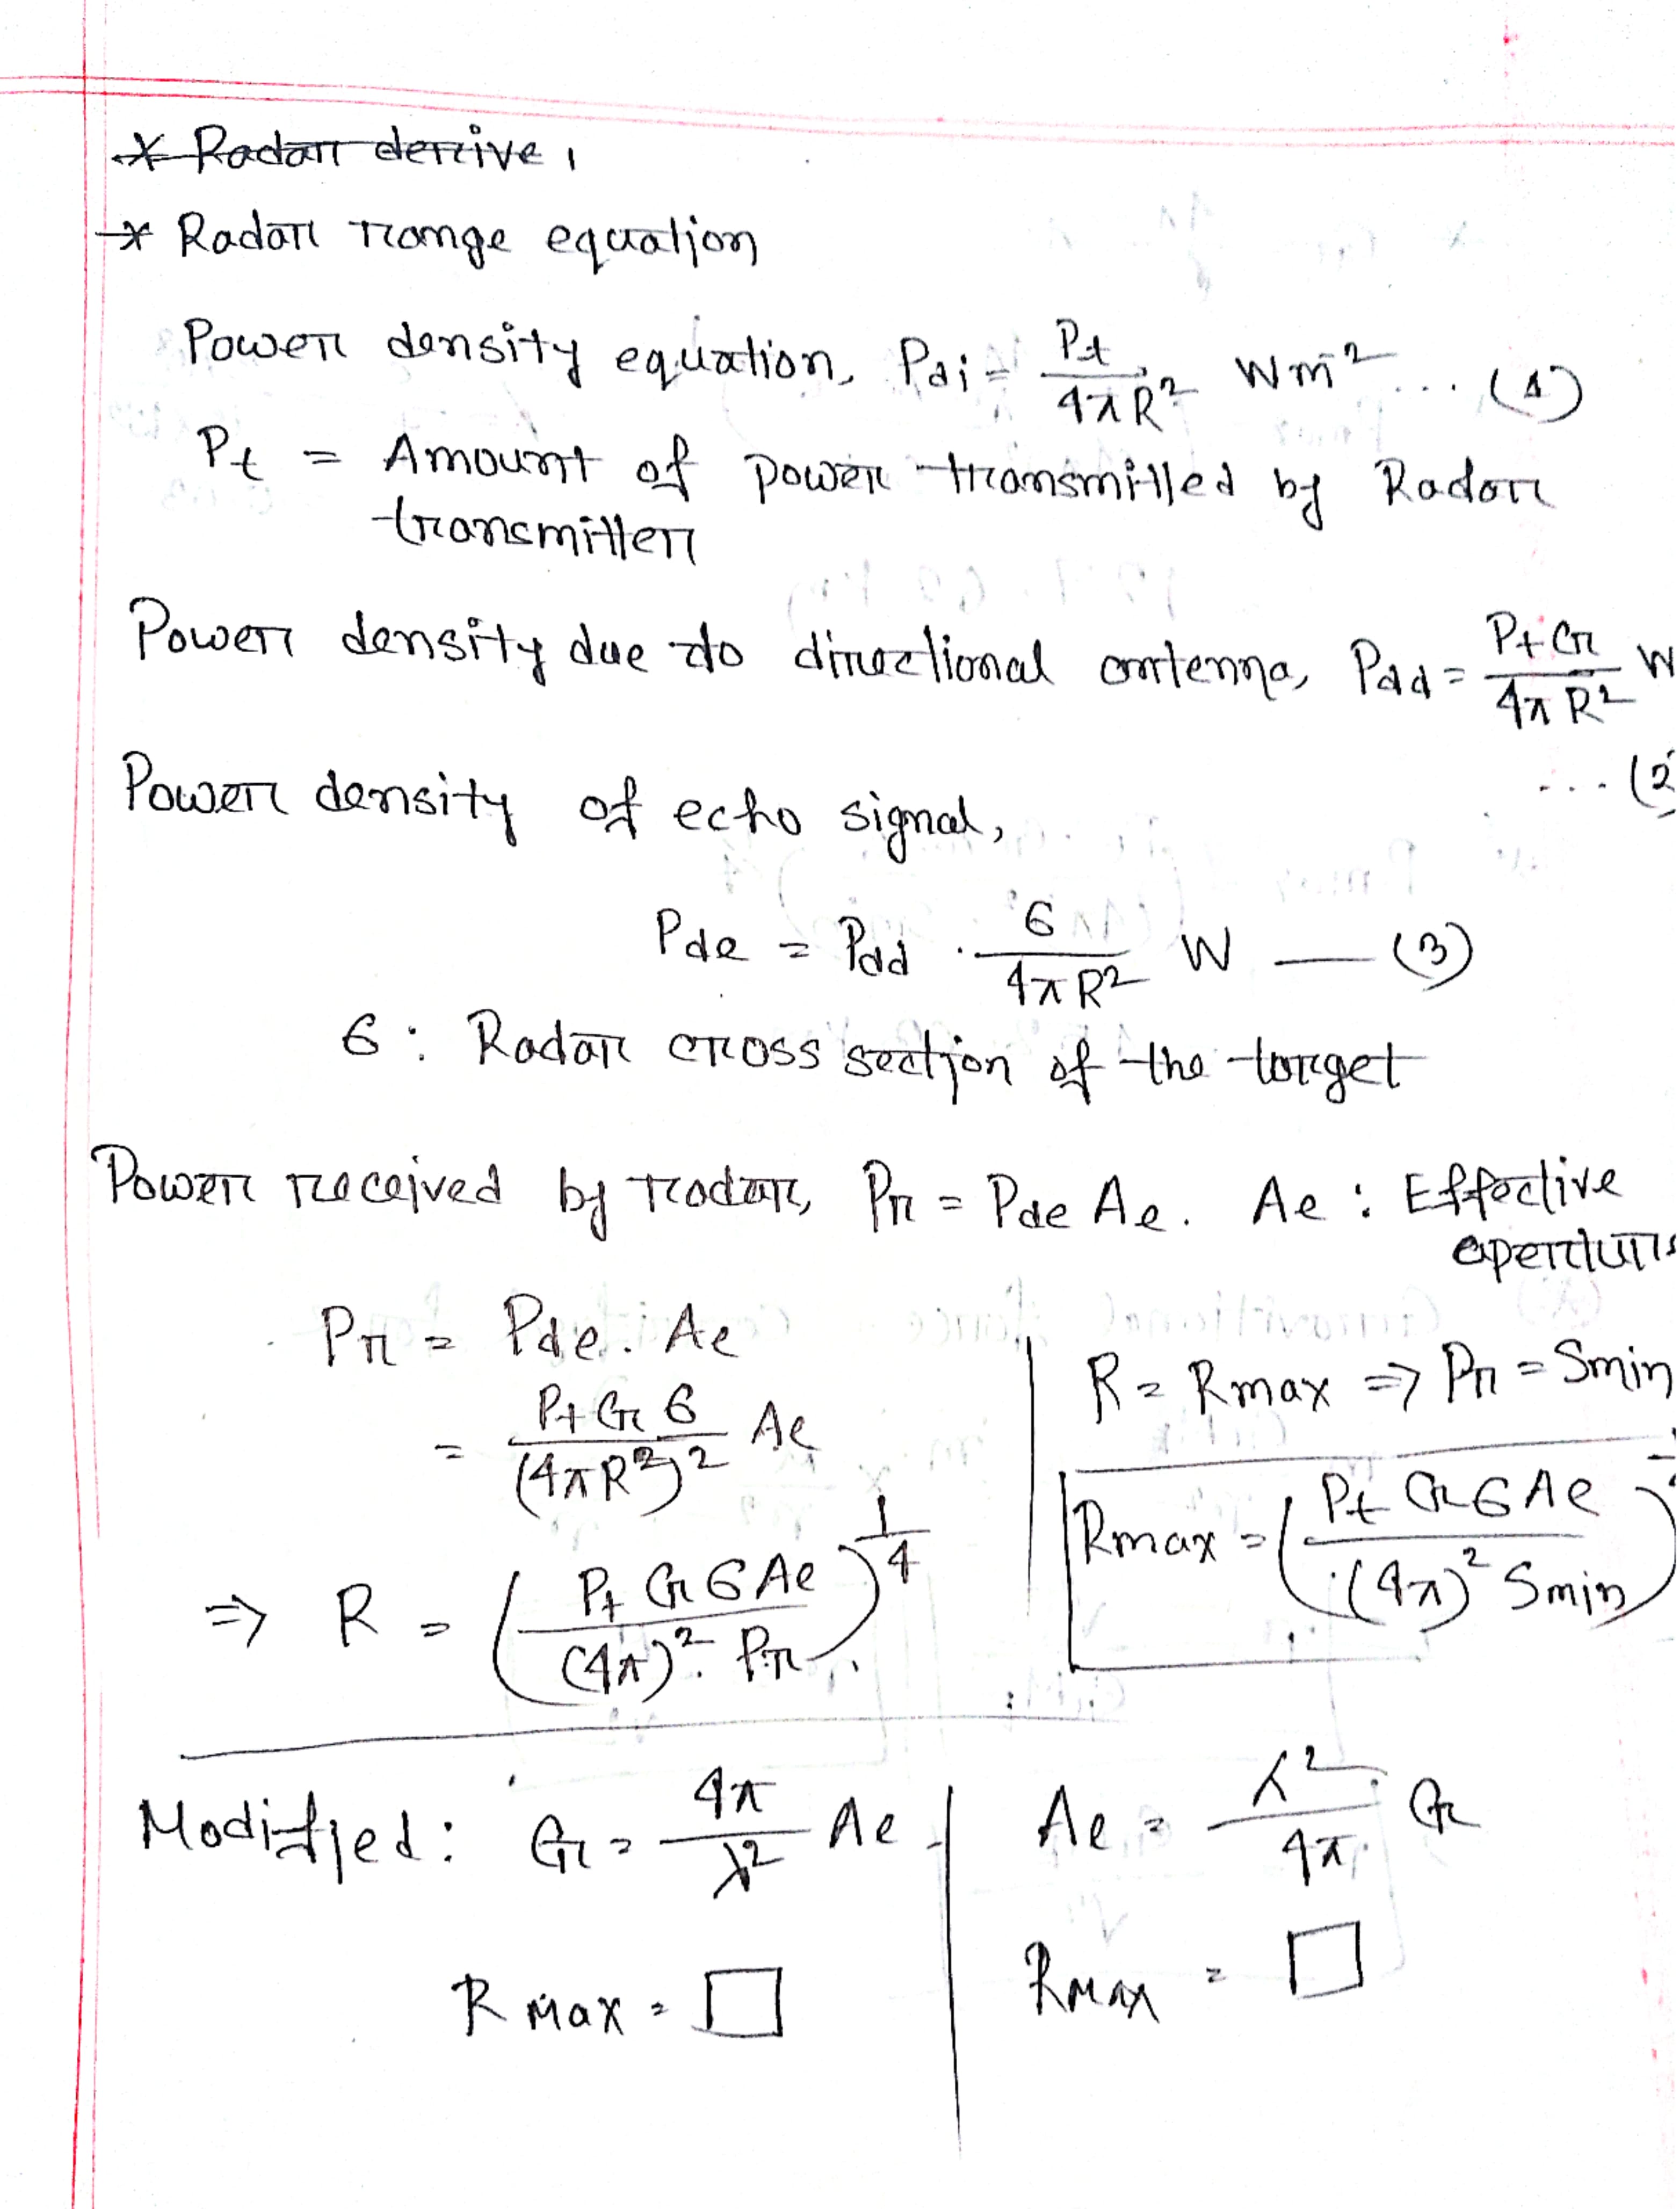 * Radar derive,
* Radar range equation
Power density equation, Pdi = Pt / 4πR² Wm⁻² ... (1)
Pt = Amount of power transmitted by Radar
transmitter
Power density due to directional antenna, Pdd = Pt G / 4πR² W
... (2
Power density of echo signal,
Pde = Pdd . σ / 4πR² W — (3)
σ : Radar cross section of the target
Power received by radar, Pr = Pde Ae. Ae : Effective
aperture
Pr = Pde . Ae
= Pt G σ / (4πR²)² Ae
⇒ R = (Pt G σ Ae / (4π)² . Pr)^1/4
R = Rmax ⇒ Pr = Smin
Rmax = (Pt G σ Ae / (4π)² Smin)
Modified: G = 4π / λ² Ae
Rmax = □
Ae = λ² / 4π G
Rmax = □